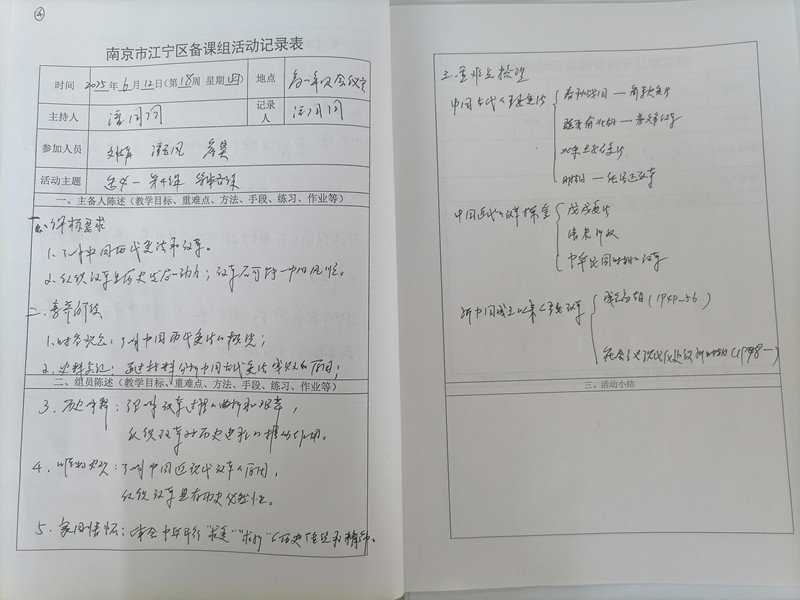 ④
南京市江宁区备课组活动记录表
时间 2025年6月12日(第18周 星期四) 地点 高一年级会议室
主持人 记录人
参加人员
活动主题
一、主备人陈述（教学目标、重难点、方法、手段、练习、作业等）
一、课标要求
1、了解中国历代变法和改革。
2、认识改革是历史发展动力；改革不可能一帆风顺。
二、素养解读
1、时空观念：了解中国历代变法的概况；
2、史料实证：通过材料分析中国古代变法成败的原因；
二、组员陈述（教学目标、重难点、方法、手段、练习、作业等）
3、历史解释：理解改革过程的曲折和艰辛，
认识改革对历史进程的推动作用。
4、唯物史观：了解中国近现代改革的原因，
认识改革具有历史必然性。
5、家国情怀：体会中华民族“求变”“求新”的历史传统和精神。
三、重难点梳理
中国古代的主要变法
春秋战国—商鞅变法
魏晋南北朝—孝文帝改革
北宋王安石变法
明朝—张居正改革
中国近代的改革探索
戊戌变法
清末新政
中华民国时期的改革
新中国成立以来的主要改革
成立初期(1949-56)
社会主义现代化建设新时期(1978—)
三、活动小结